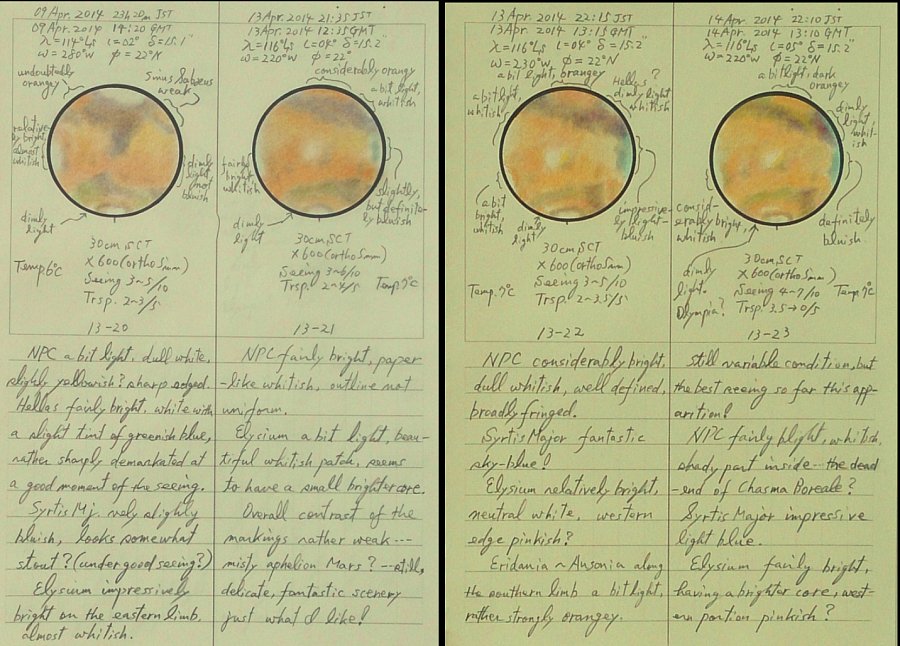 09 Apr. 2014 23h20m JST
09 Apr. 2014 14:20 GMT
λ=114°Ls ι=02° δ=15.1"
ω=280°W φ=22°N
undoubtedly
orangey
Sinus Sabaeus
weak
relative-
ly bright,
almost
whitish
dimly
light,
not
bluish
dimly
light
30cm SCT
×600 (ortho5mm)
Temp 6°C
Seeing 3~5/10
Trsp. 2~3/5
13-20
NPC a bit light, dull white,
slighly yellowish? sharp edged.
Hellas fairly bright, white with
a slight tint of greenish blue,
rather sharply demarkated at
a good moment of the seeing.
Syrtis Mj. vely slighly
bluish, looks somewhat
stout? (under good seeing?)
Elysium impressively
bright on the eastern limb,
almost whitish.
13 Apr. 2014 21:35 JST
13 Apr. 2014 12:35 GMT
λ=116°Ls ι=04° δ=15.2"
ω=220°W φ=22°
considerably orangy
a bit light,
whitish
fairly
bright,
whitish
slightly,
but definite-
ly bluish
dimly
light
30cm SCT
×600 (ortho5mm)
Seeing 3~6/10
Trsp. 2~4/5
Temp. 9°C
13-21
NPC fairly bright, paper
-like whitish, outline not
uniform.
Elysium a bit light, beau-
tiful whitish patch, seems
to have a small brighter core.
Overall contrast of the
markings rather weak ---
misty aphelion Mars? -- still,
delicate, fantastic scenery
just what I like!
13 Apr. 2014 22:15 JST
13 Apr. 2014 13:15 GMT
λ=116°Ls ι=04° δ=15.2"
ω=230°W φ=22°N
a bit light, orangey
Hellas?
dimly light
whitish
a bit light,
whitish
a bit
bright,
whitish
impressive-
ly light-
bluish
dimly
light
30cm SCT
×600 (ortho5mm)
Seeing 3~5/10
Trsp. 2~3.5/5
Temp. 9°C
13-22
NPC considerably bright,
dull whitish, well defined,
broadly fringed.
Syrtis Major fantastic
sky-blue!
Elysium relatively bright,
neutral white, western
edge pinkish?
Eridania ~ Ausonia along
the southern limb a bit light,
rather strongly orangey.
14 Apr. 2014 22:10 JST
14 Apr. 2014 13:10 GMT
λ=116°Ls ι=05° δ=15.2"
ω=220°W φ=22°N
a bit light, dark
orangey
dimly
light,
whit-
ish
consid-
erably bright,
whitish
definitely
bluish
dimly
light
Olympia?
30cm SCT
×600 (ortho5mm)
Seeing 4~7/10
Trsp. 3.5→0/5
Temp. 9°C
13-23
Still variable condition, but
the best seeing so far this app-
arition!
NPC fairly blight, whitish,
shady part inside --- the dead
-end of Chasma Boreale?
Syrtis Major impressive
light blue.
Elysium fairly bright,
having a brighter core, west-
ern portion pinkish?